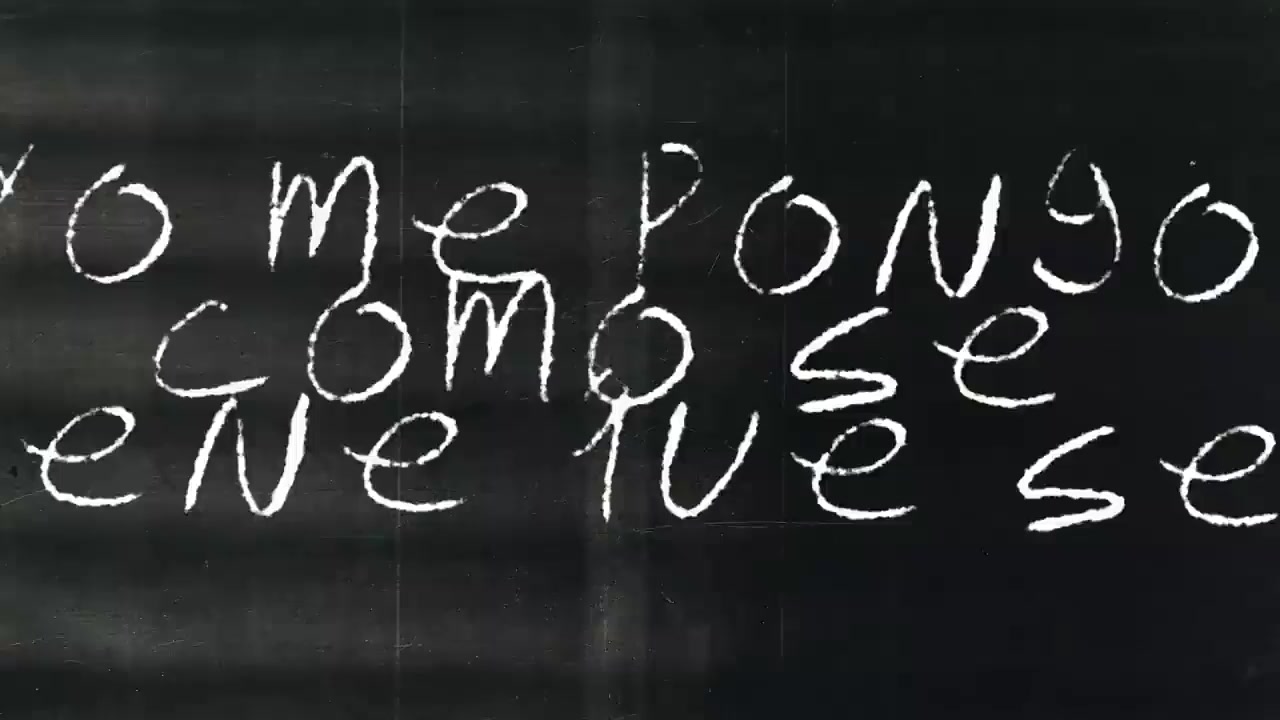 yo me pongo
como se
ene que se